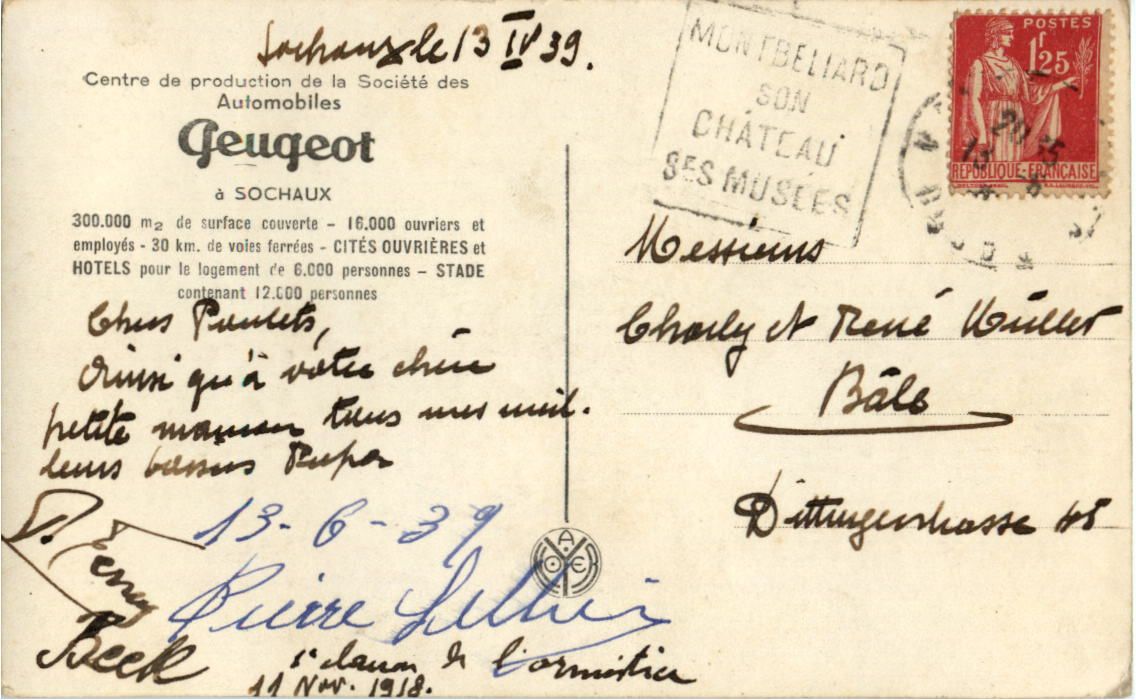 Sochaux le 13 IV 39.
Centre de production de la Société des
Automobiles
Peugeot
à SOCHAUX
300.000 m2 de surface couverte – 16.000 ouvriers et
employés - 30 km. de voies ferrées - CITÉS OUVRIÈRES et
HOTELS pour le logement de 6.000 personnes – STADE
contenant 12.000 personnes
Chers Poulets,
Ainsi qu'à votre chère
petite maman tous mes meil-
leurs baisers Papa
13-6-39
Pierre
Beck
clairon de l'armistice
11 Nov. 1918.
MONTBELIARD
SON
CHÂTEAU
SES MUSÉES
POSTES
1f25
RÉPUBLIQUE-FRANÇAISE
Messieurs
Charly et René Müller
Bâle